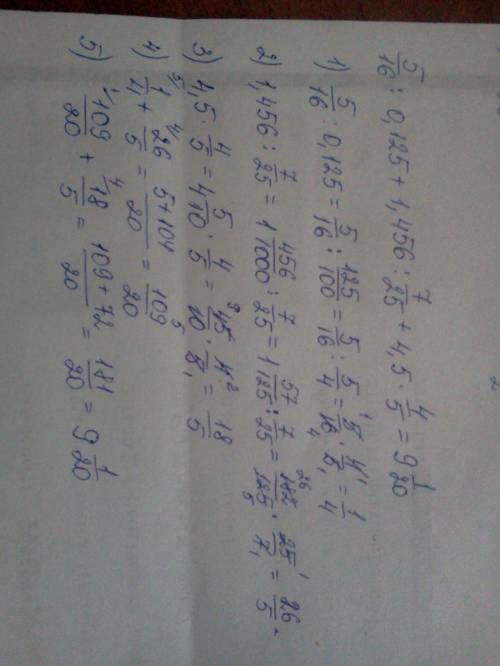 5/16 : 0,125 + 1,456 : 7/25 + 4,5 · 4/5 = 9 1/20
1) 5/16 : 0,125 = 5/16 : 125/100 = 5/16 : 5/4 = 5/16 · 4/5 = 1/4
2) 1,456 : 7/25 = 1 456/1000 : 7/25 = 1 57/125 : 7/25 = 182/125 · 25/7 = 26/5
3) 4,5 · 4/5 = 4 5/10 · 4/5 = 45/10 · 4/5 = 18/5
4) 1/4 + 26/5 = 5+104/20 = 109/20
5) 109/20 + 18/5 = 109+72/20 = 181/20 = 9 1/20